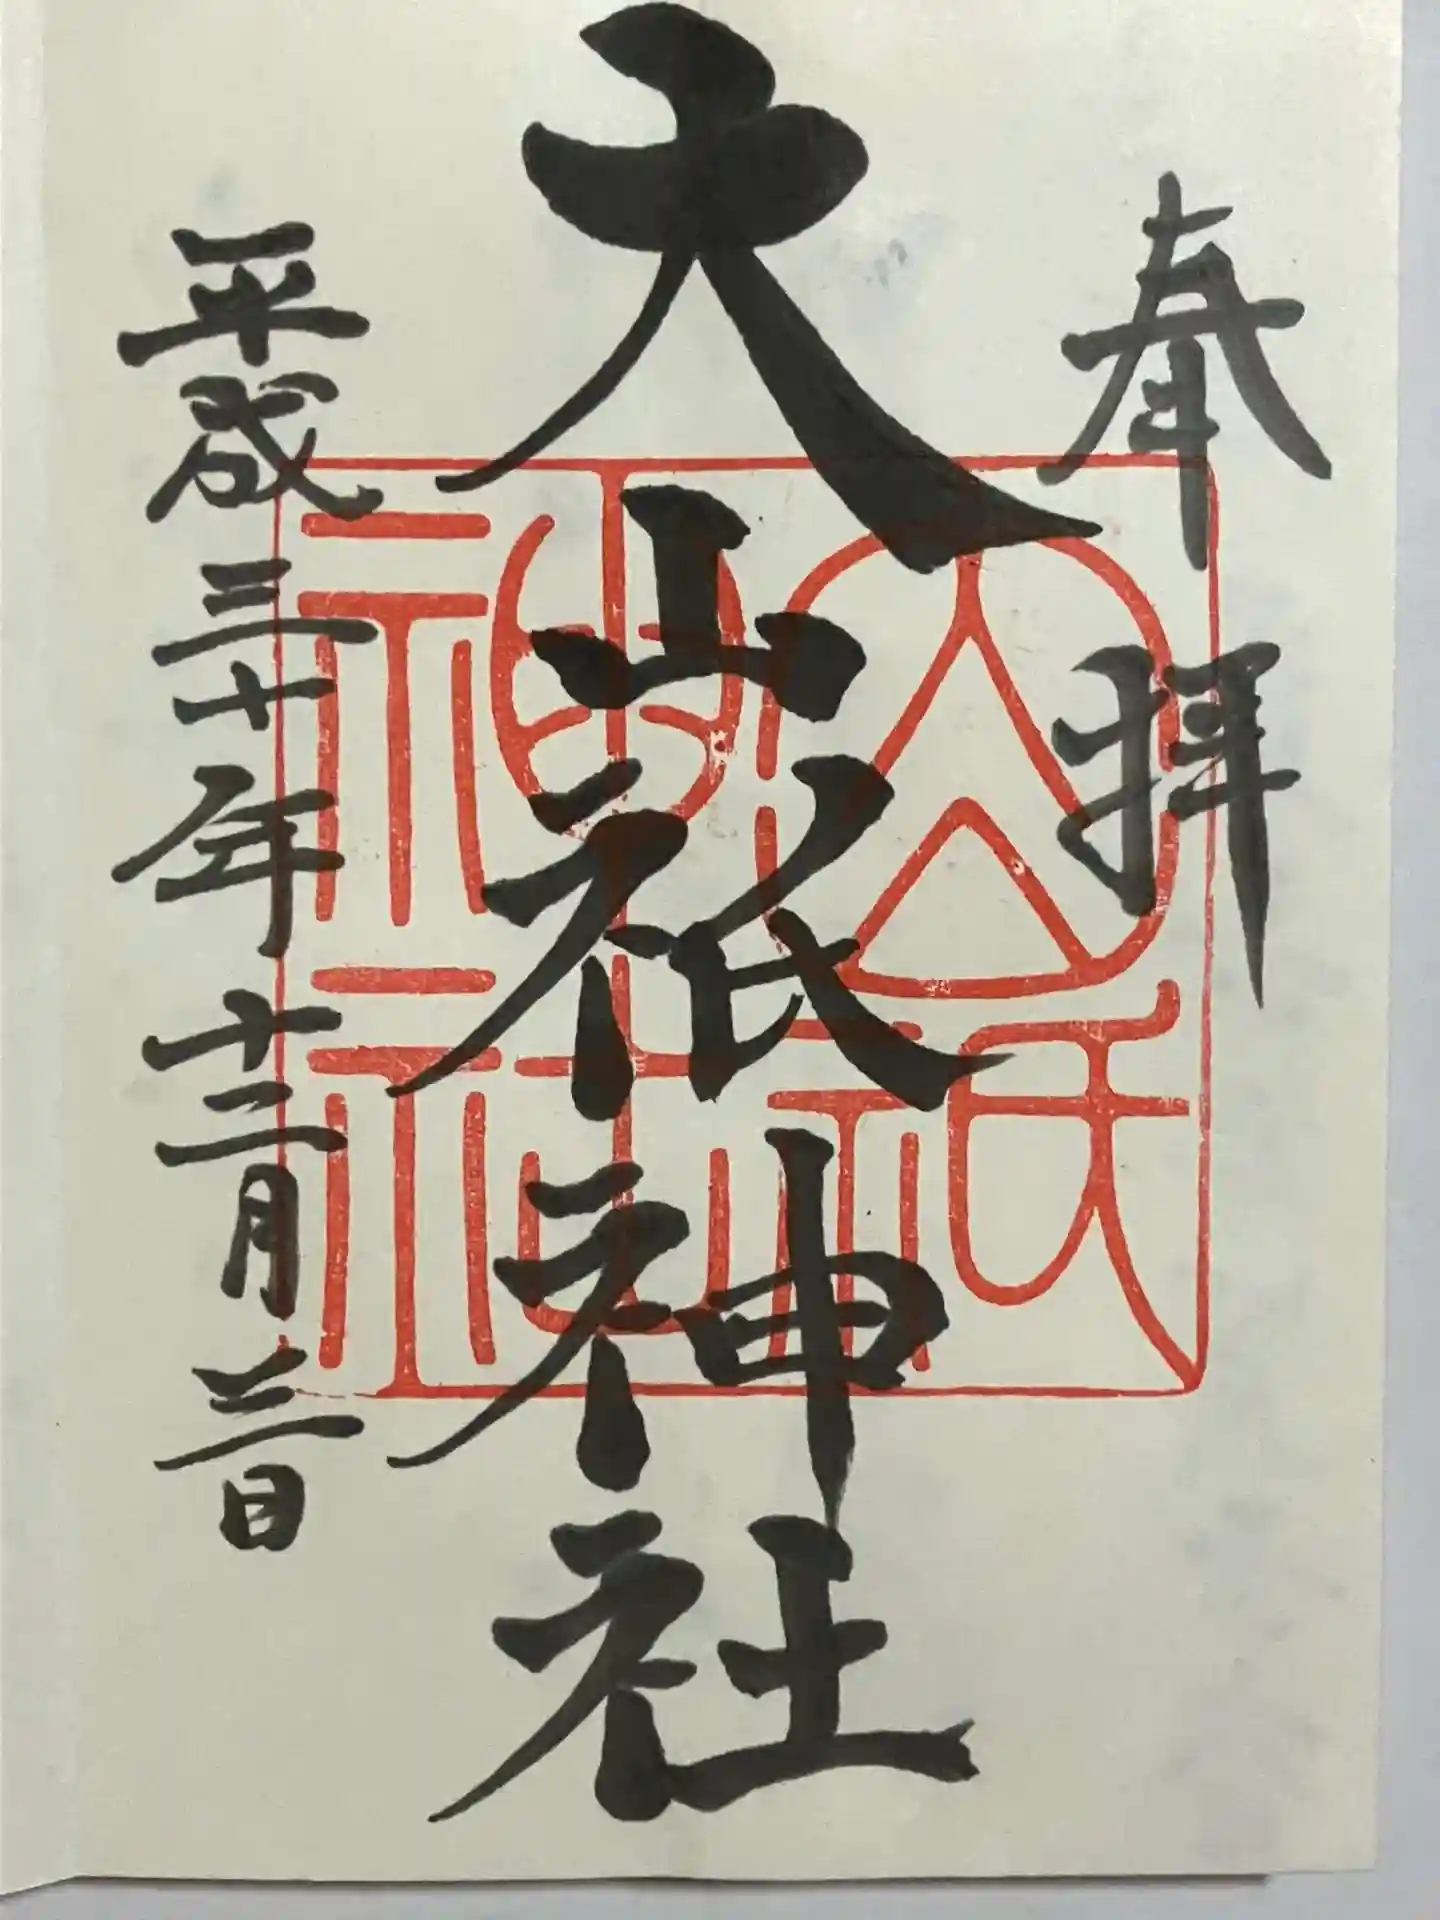 奉拝
大山祇神社
平成三十年十二月三日
大山祇
神社